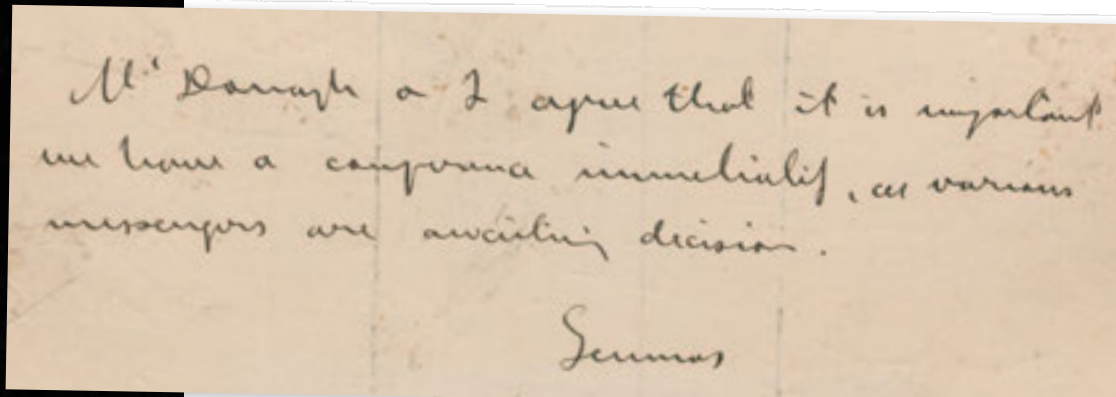 McDonagh & I agree that it is important
we have a conference immediately, as various
messengers are awaiting decision.
Seumas